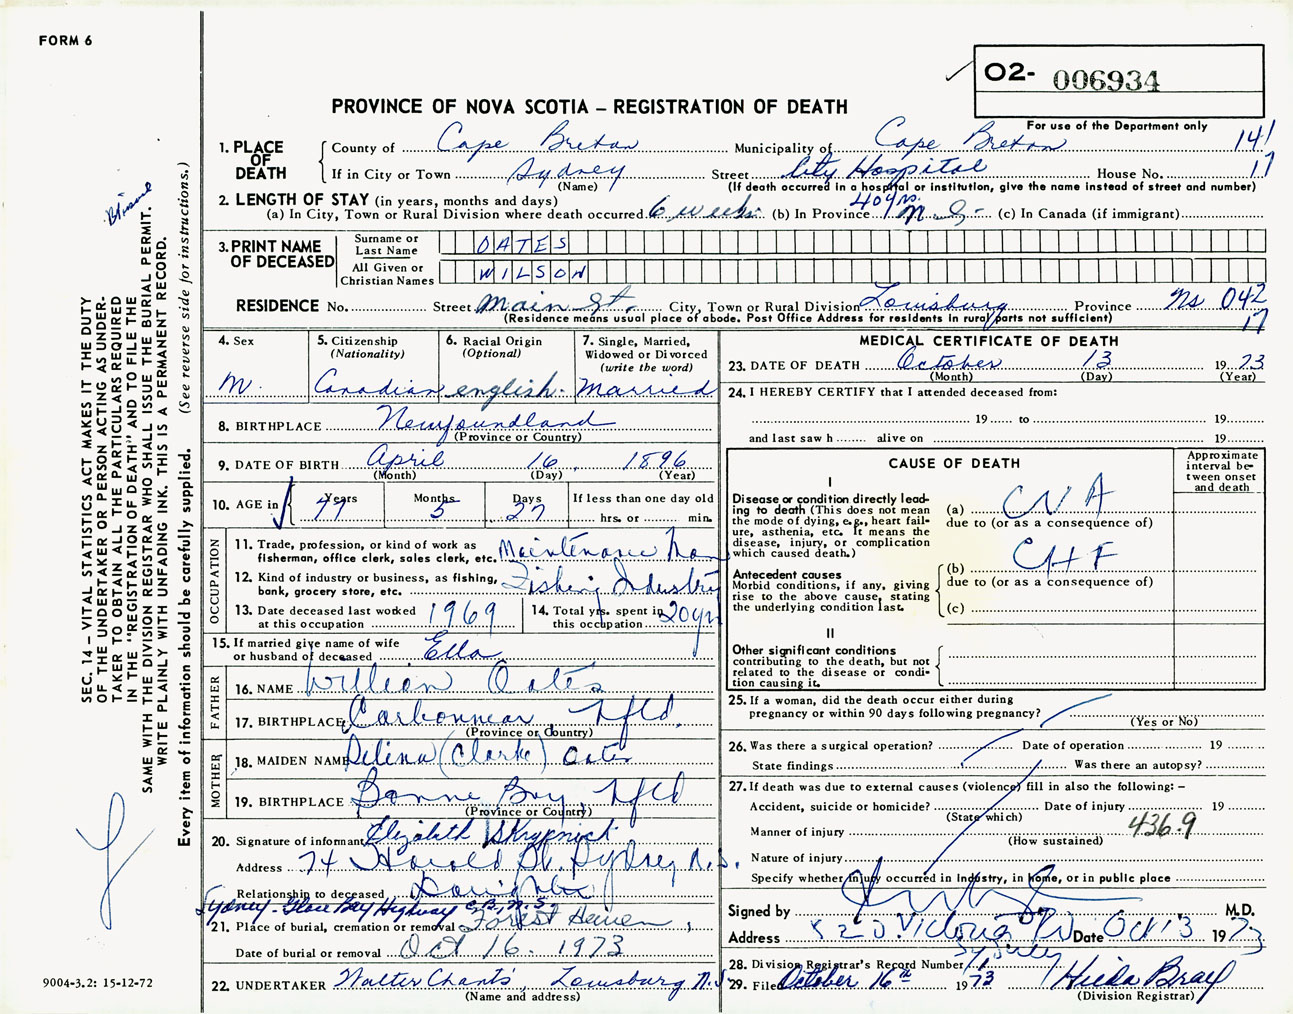 FORM 6
O2- 006934
PROVINCE OF NOVA SCOTIA – REGISTRATION OF DEATH
For use of the Department only
1. PLACE OF DEATH
County of Cape Breton Municipality of Cape Breton 141
If in City or Town Sydney Street City Hospital House No. 17
(Name) (If death occurred in a hospital or institution, give the name instead of street and number)
2. LENGTH OF STAY (in years, months and days)
(a) In City, Town or Rural Division where death occurred 6 weeks (b) In Province 40 yrs. N.S. (c) In Canada (if immigrant)
3. PRINT NAME OF DECEASED
Surname or Last Name OATES
All Given or Christian Names WILSON
RESIDENCE No. Street Main St. City, Town or Rural Division Louisburg Province NS 042
(Residence means usual place of abode. Post Office Address for residents in rural parts not sufficient) 17
4. Sex M.
5. Citizenship (Nationality) Canadian
6. Racial Origin (Optional) english.
7. Single, Married, Widowed or Divorced (write the word) Married
8. BIRTHPLACE Newfoundland
(Province or Country)
9. DATE OF BIRTH April 16, 1896
(Month) (Day) (Year)
10. AGE in Years 77 Months 5 Days 27 If less than one day old hrs. or min.
OCCUPATION
11. Trade, profession, or kind of work as fisherman, office clerk, sales clerk, etc. Maintenance Man
12. Kind of industry or business, as fishing, bank, grocery store, etc. Fishing Industry
13. Date deceased last worked at this occupation 1969
14. Total yrs. spent in this occupation 20 yrs
15. If married give name of wife or husband of deceased Ella
FATHER
16. NAME William Oates
17. BIRTHPLACE Carbonnear, Nfld.
(Province or Country)
MOTHER
18. MAIDEN NAME Delina (Clarke) Oates
19. BIRTHPLACE Bonne Bay, Nfld
(Province or Country)
20. Signature of informant Elizabeth Skrypnick
Address 74 Harold St. Sydney N.S.
Relationship to deceased Daughter
Sydney-Glace Bay Highway C.B., N.S.
21. Place of burial, cremation or removal Forest Haven,
Date of burial or removal Oct 16. 1973
22. UNDERTAKER Walter Chants', Louisburg N.S.
(Name and address)
MEDICAL CERTIFICATE OF DEATH
23. DATE OF DEATH October 13 1973
(Month) (Day) (Year)
24. I HEREBY CERTIFY that I attended deceased from:
19 to 19
and last saw h alive on 19
CAUSE OF DEATH
Approximate interval between onset and death
I
Disease or condition directly leading to death (This does not mean the mode of dying, e.g., heart failure, asthenia, etc. It means the disease, injury, or complication which caused death.)
(a) CVA
due to (or as a consequence of)
Antecedent causes
Morbid conditions, if any, giving rise to the above cause, stating the underlying condition last.
(b) CHF
due to (or as a consequence of)
(c)
II
Other significant conditions
contributing to the death, but not related to the disease or condition causing it.
25. If a woman, did the death occur either during pregnancy or within 90 days following pregnancy?
(Yes or No)
26. Was there a surgical operation? Date of operation 19
State findings Was there an autopsy?
27. If death was due to external causes (violence) fill in also the following: –
Accident, suicide or homicide? Date of injury 19
(State which)
Manner of injury 436.9
(How sustained)
Nature of injury
Specify whether injury occurred in Industry, in home, or in public place
Signed by M.D.
Address 520 Victoria Rd Date Oct 13 1973
Sydney
28. Division Registrar's Record Number
29. Filed October 16th 1973 Hilda Bray
(Division Registrar)
SEC. 14 – VITAL STATISTICS ACT MAKES IT THE DUTY
OF THE UNDERTAKER OR PERSON ACTING AS UNDER-
TAKER TO OBTAIN ALL THE PARTICULARS REQUIRED
IN THE "REGISTRATION OF DEATH" AND TO FILE THE
SAME WITH THE DIVISION REGISTRAR WHO SHALL ISSUE THE BURIAL PERMIT.
WRITE PLAINLY WITH UNFADING INK. THIS IS A PERMANENT RECORD.
Every item of information should be carefully supplied. (See reverse side for instructions.)
9004-3.2: 15-12-72